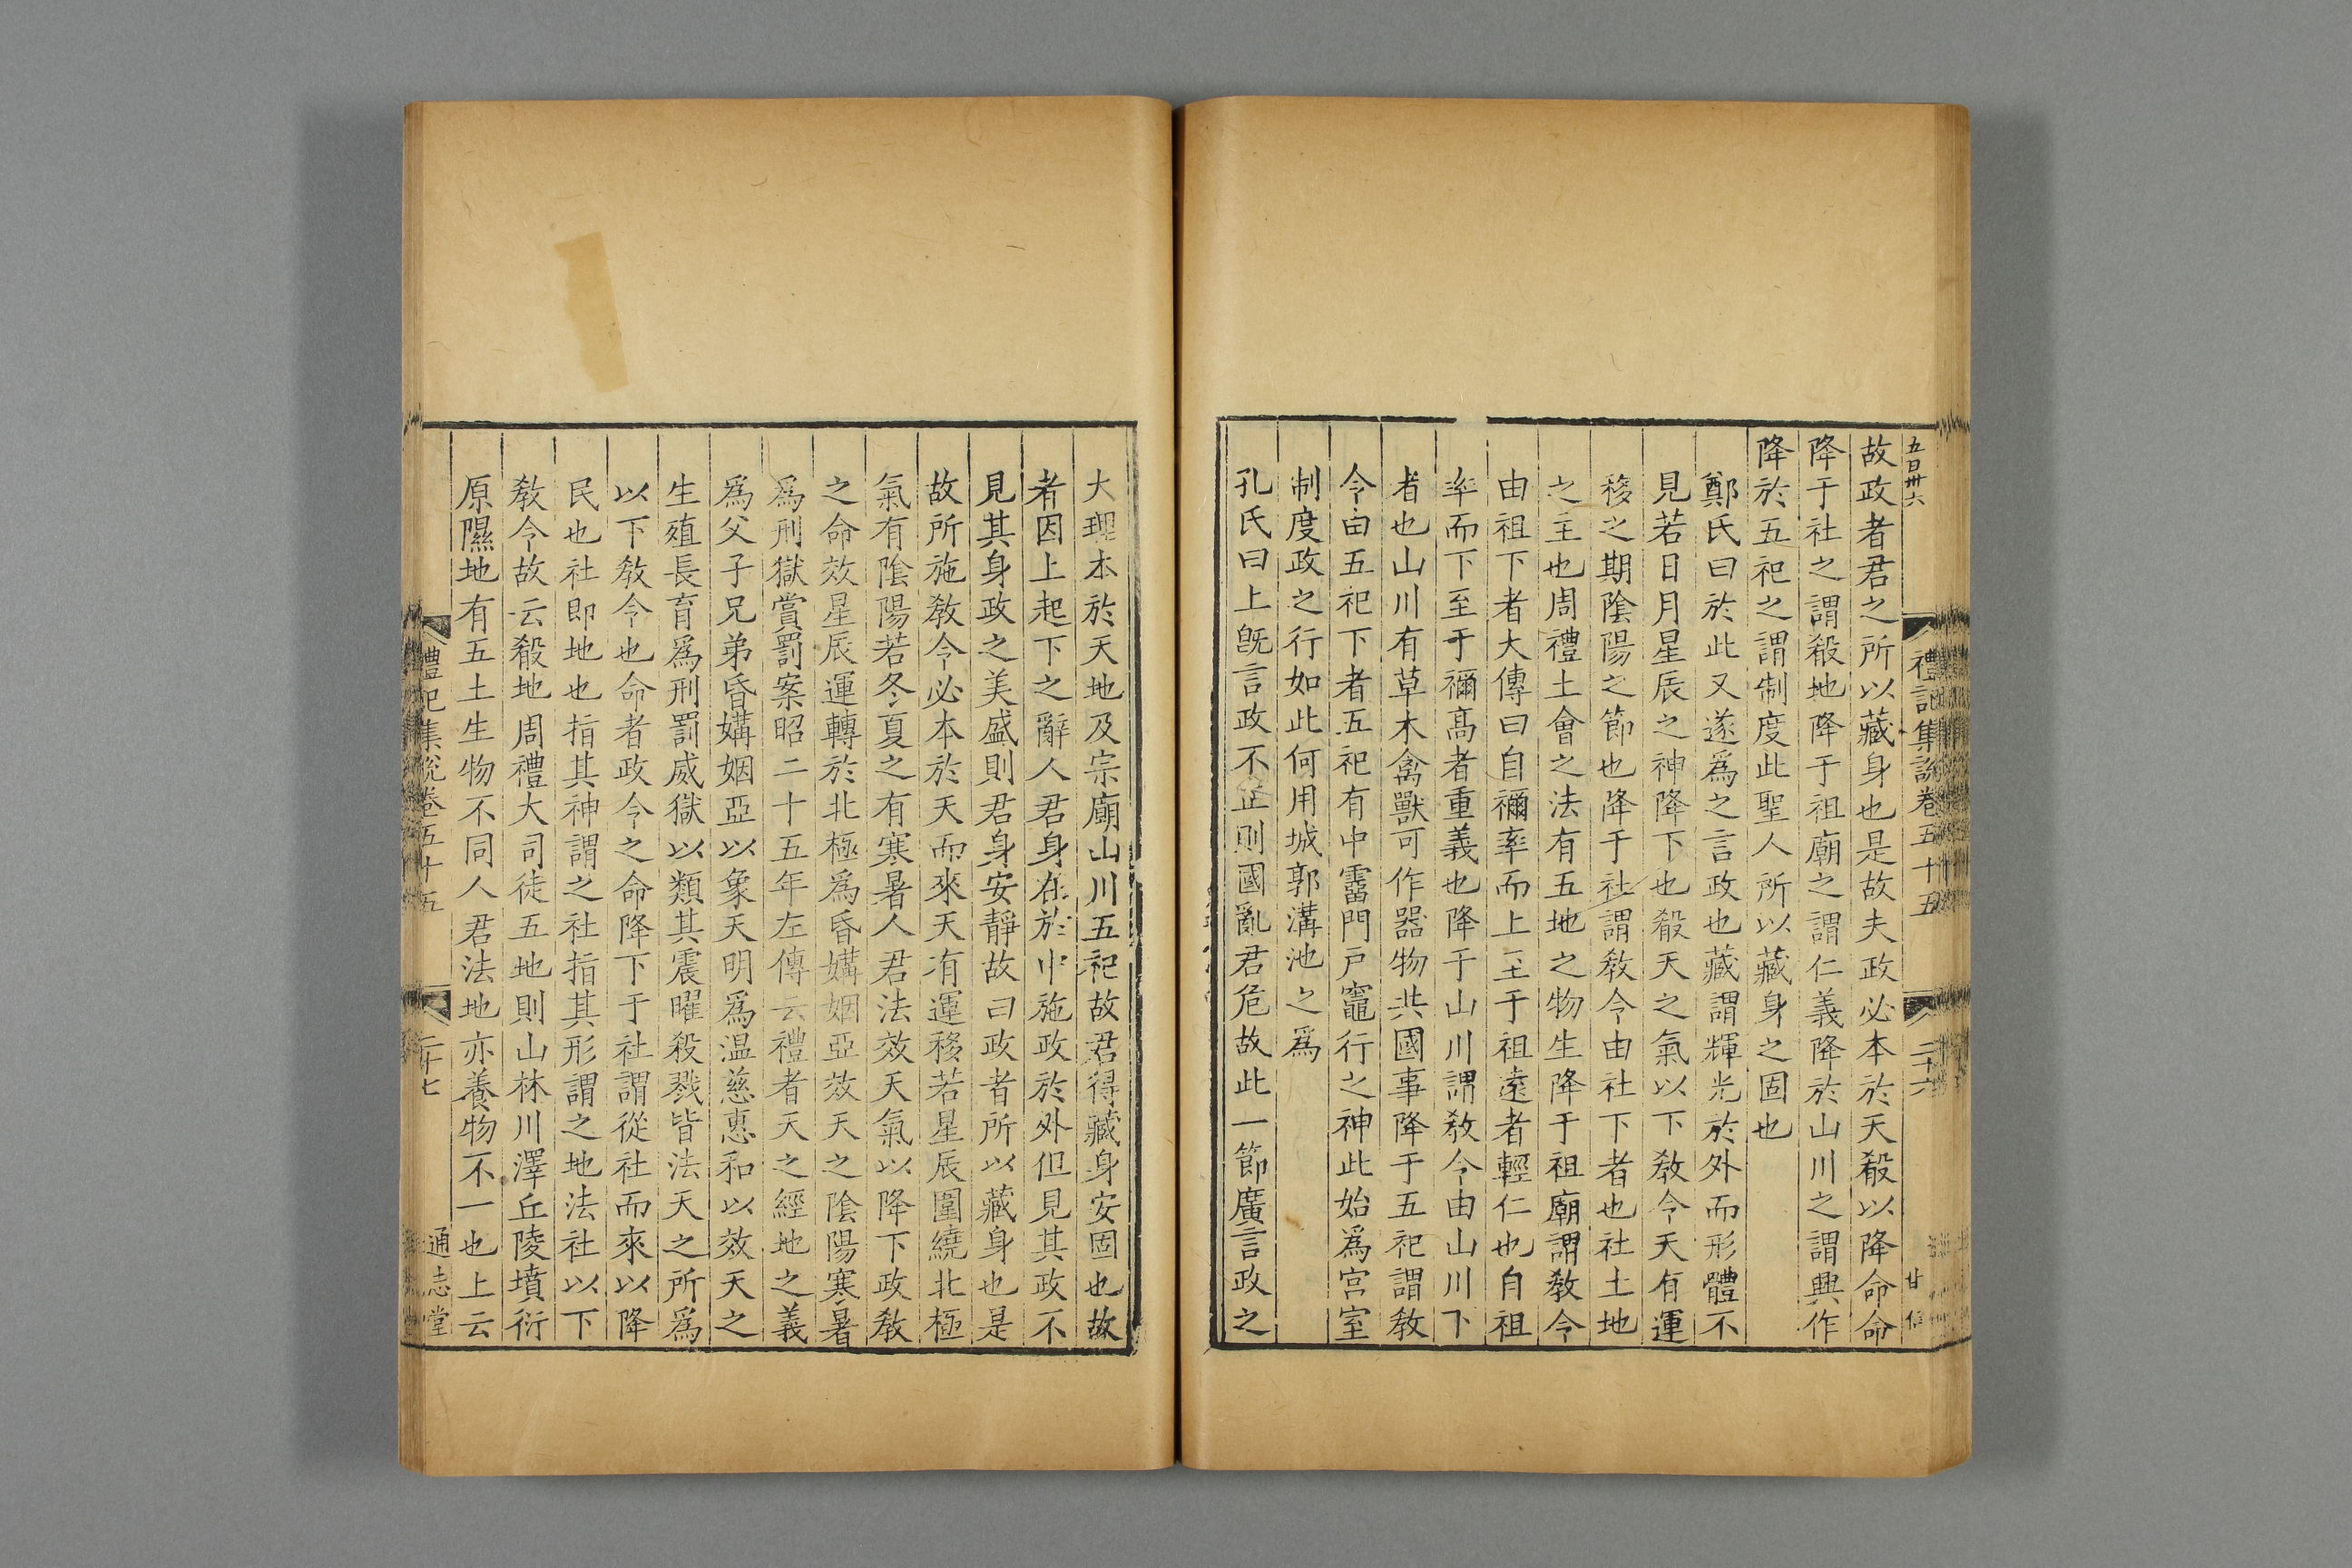 五百卅六
禮記集說卷五十五
二十六
甘
故政者君之所以藏身也是故夫政必本於天殽以降命命
降于社之謂殽地降于祖廟之謂仁義降於山川之謂興作
降於五祀之謂制度此聖人所以藏身之固也
鄭氏曰於此又遂爲之言政也藏謂輝光於外而形體不
見若日月星辰之神降下也殽天之氣以下敎令天有運
移之期陰陽之節也降于社謂敎令由社下者也社土地
之主也周禮土會之法有五地之物生降于祖廟謂敎令
由祖下者大傳曰自禰率而上至于祖遠者輕仁也自祖
率而下至于禰髙者重義也降于山川謂敎令由山川下
者也山川有草木禽獸可作器物共國事降于五祀謂敎
令由五祀下者五祀有中霤門戸竈行之神此始爲宫室
制度政之行如此何用城郭溝池之爲
孔氏曰上旣言政不正則國亂君危故此一節廣言政之
大理本於天地及宗廟山川五祀故君得藏身安固也故
者因上起下之辭人君身在於中施政於外但見其政不
見其身政之美盛則君身安靜故曰政者所以藏身也是
故所施敎令必本於天而來天有運移若星辰圍繞北極
氣有陰陽若冬夏之有寒暑人君法效天氣以降下政敎
之命效星辰運轉於北極爲昏媾姻亞效天之陰陽寒暑
爲刑獄賞罰案昭二十五年左傳云禮者天之經地之義
爲父子兄弟昏媾姻亞以象天明爲温慈惠和以效天之
生殖長育爲刑罰威獄以類其震曜殺戮皆法天之所爲
以下敎令也命者政令之命降下于社謂從社而來以降
民也社即地也指其神謂之社指其形謂之地法社以下
敎令故云殽地周禮大司徒五地則山林川澤丘陵墳衍
原隰地有五土生物不同人君法地亦養物不一也上云
禮記集說卷五十五
二十七
通志堂